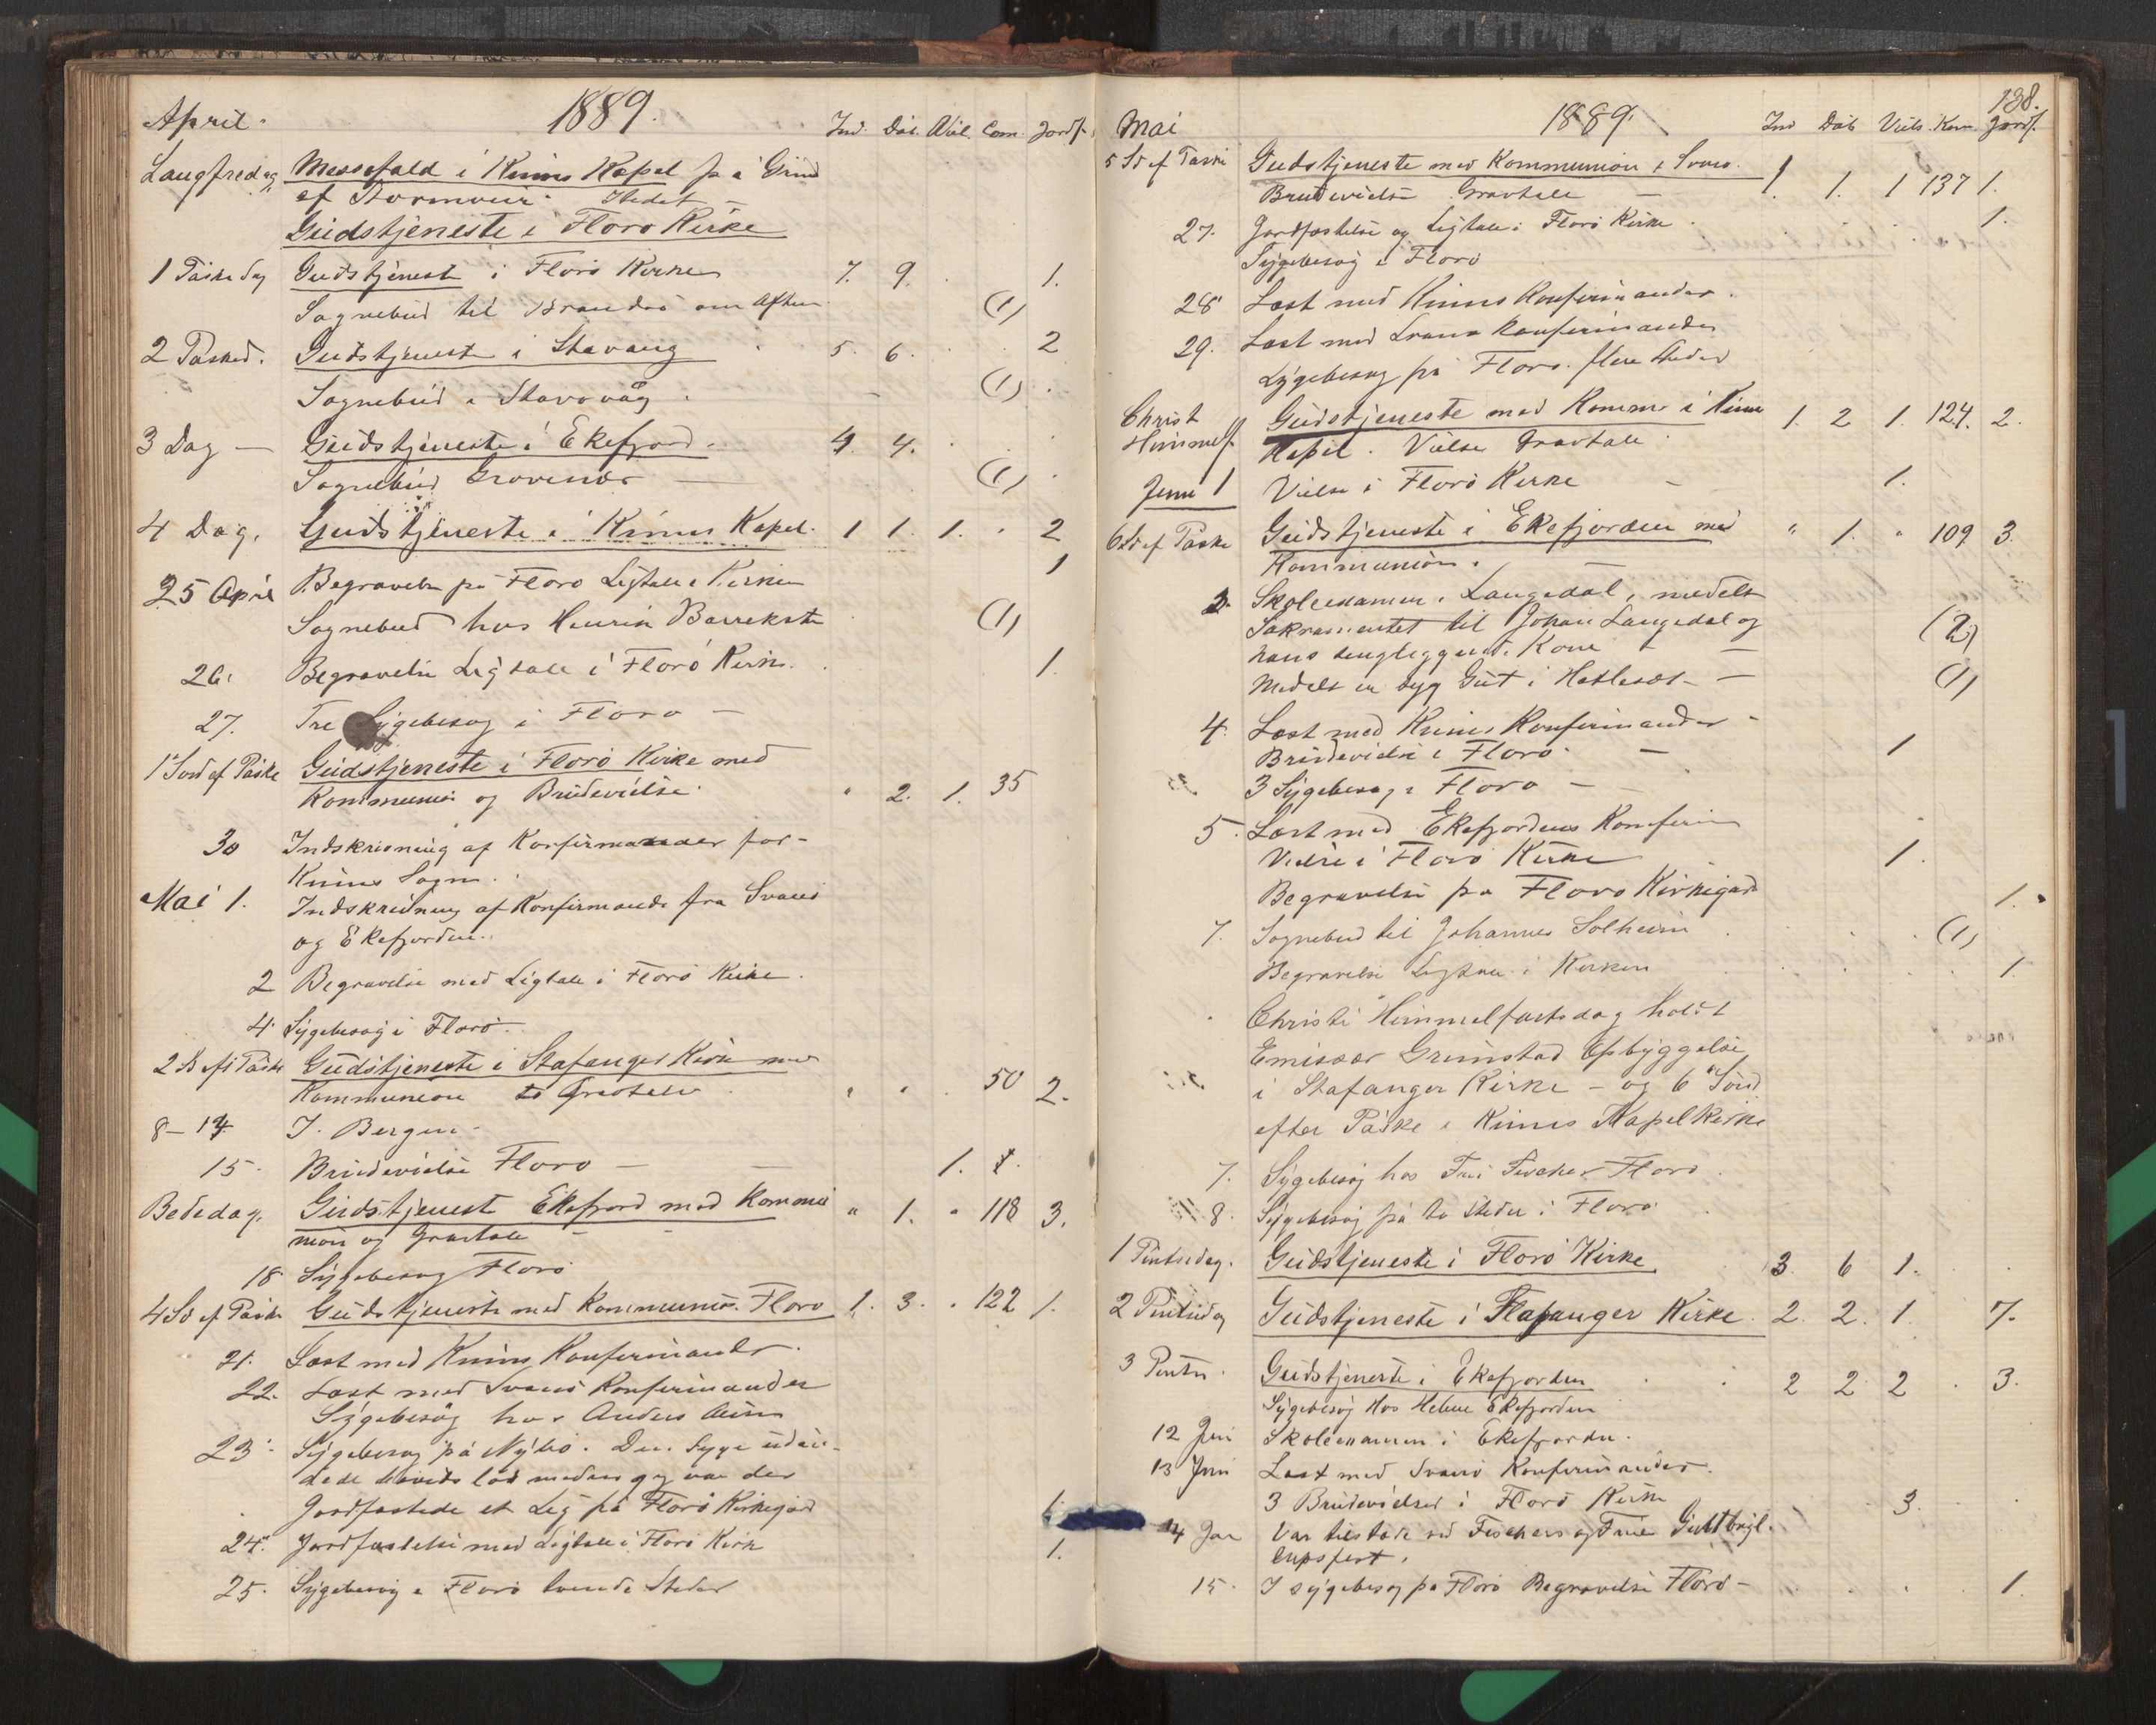 April. 1889. Ind. Døb. Viel. Com. Jordf.
Langfredag Messefald i Kinns Kapel på Grund
af Stormveir. Istedet
Gudstjeneste i Florø Kirke
1 Påskedag Gudstjeneste i Florø Kirke 7. 9. 1.
Sognebud til Brandsø om Aften (1)
2 Påsked. Gudstjeneste i Stavang 5. 6. 2
Sognebud i Stavvåg (1)
3 Dag — Gudstjeneste i Ekefjord. 4 4.
Sognebud (1)
4 Dag. Gudstjeneste i Kinns Kapel. 1 1. 1. 2
25 April Begravelse på Florø Ligtale i Kirken 1
Sognebud hos Henrik Barrekste (1)
26. Begravelse Ligtale i Florø Kirke. 1.
27. Tre Sygebesøg i Florø —
1 Sønd ef Påske Gudstjeneste i Florø Kirke med
Kommunion og Brudevielse. " 2. 1. 35
30 Indskrivning af Konfirmander for
Kinns Sogn.
Mai 1. Indskrivning af Konfirmander fra Svanø
og Ekefjorden.
2 Begravelse med Ligtale i Florø Kirke.
4. Sygebesøg i Florø.
2 S eft Påske Gudstjeneste i Stafanger Kirke med
Kommunion to Gravtaler " " 50 2.
8–14 I Bergen
15. Brudevielse Florø — 1.
Bededag. Gudstjenest Ekefjord med Kommu " 1. " 118 3.
nion og Gravtale
18 Sygebesøg Florø
4 Sø ef Påske Gudstjeneste med Kommunion Florø 1. 3. " 122 1.
21. Læst med Kinns Konfirmander.
22. Læst med Svanø Konfirmander
Sygebesøg hos Anders
23. Sygebesøg på Nybø. Den Syge udån-
dede medens jeg var der
Jordfæstede et Lig på Florø Kirkegård 1.
24. Jordfæstelse med Ligtale i Florø Kirke 1.
25. Sygebesøg i Florø tvende Steder
138.
Mai 1889. Ind Døb Viels. Kom. Jordf.
5 Sø ef Påske Gudstjeneste med Kommunion i Svanø.
Brudevielse Gravtale — 1. 1. 1 137 1.
27. Jordfæstelse og Ligtale i Florø Kirke. 1.
Sygebesøg i Florø
28 Læst med Kinns Konfirmander.
29. Læst med Svanø Konfirmander
Sygebesøg på Florø flere Steder
Christ Gudstjeneste med Komm. i Kinn 1. 2 1. 124. 2.
Himmelf. Kapel. Vielse Gravtale.
Juni 1 Vielse i Florø Kirke — 1.
6 Sø ef Påske Gudstjeneste i Ekefjorden med " 1. " 109 3.
Kommunion.
3. Skoleexamen i Langedal, meddelt
Sakramentet til Johan Langedal og (2)
hans sengliggende Kone —
Meddelt en syg Gut i Hatleset — (1)
4. Læst med Kinns Konfirmander
Brudevielse i Florø — 1
3 Sygebesøg i Florø —
5. Læst med Ekefjordens Konfirm
Vielse i Florø Kirke 1.
Begravelse på Florø Kirkegård 1.
7. Sognebud til Johannes Solheim (1)
Begravelse Ligtale i Kirken 1.
Christi Himmelfartsdag holdt
Emissær Grimstad Opbyggelse
i Stafanger Kirke — og 6 Sønd
efter Påske i Kinns Kapel Kirke
7. Sygebesøg hos Fru Fischer Florø
8. Sygebesøg på to Steder i Florø
1 Pintsedag. Gudstjeneste i Florø Kirke 3. 6 1.
2 Pintsedag Gudstjeneste i Stafanger Kirke. 2. 2. 1. 7.
3 Pints. Gudstjeneste i Ekefjorden 2 2 2 3.
Sygebesøg Hos Helene Ekefjorden
12 Juni Skoleexamen i Ekefjorden.
13 Juni Læst med Svanø Konfirmander.
3 Brudevielser i Florø Kirke 3.
14 Jun Var tilstede ved Fischers og Frues Guldbryl-
lupsfest.
15. I sygebesøg på Florø Begravelse Florø — 1.